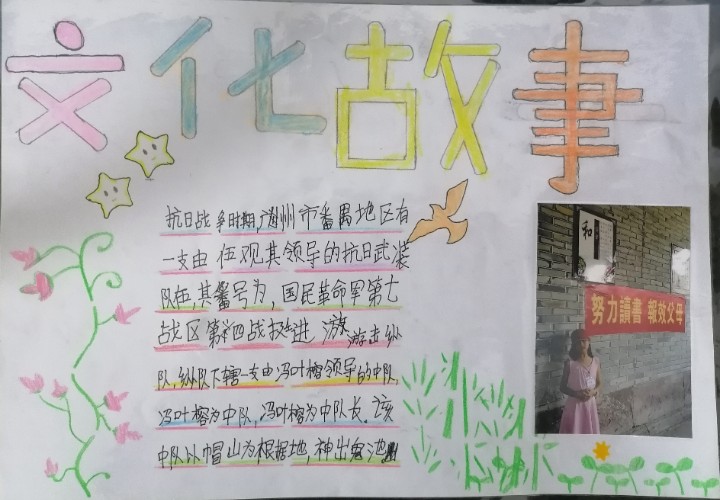 文化故事
抗日战争时期,广州市番禺地区有
一支由伍观其领导的抗日武装
队伍,其番号为,国民革命军第七
战区第四战挺进游游击纵
队,纵队下辖一支由冯叶榕领导的中队,
冯叶榕为中队,冯叶榕为中队长.该
中队以帽山为根据地,神出鬼池
和
努力讀書 報效父母